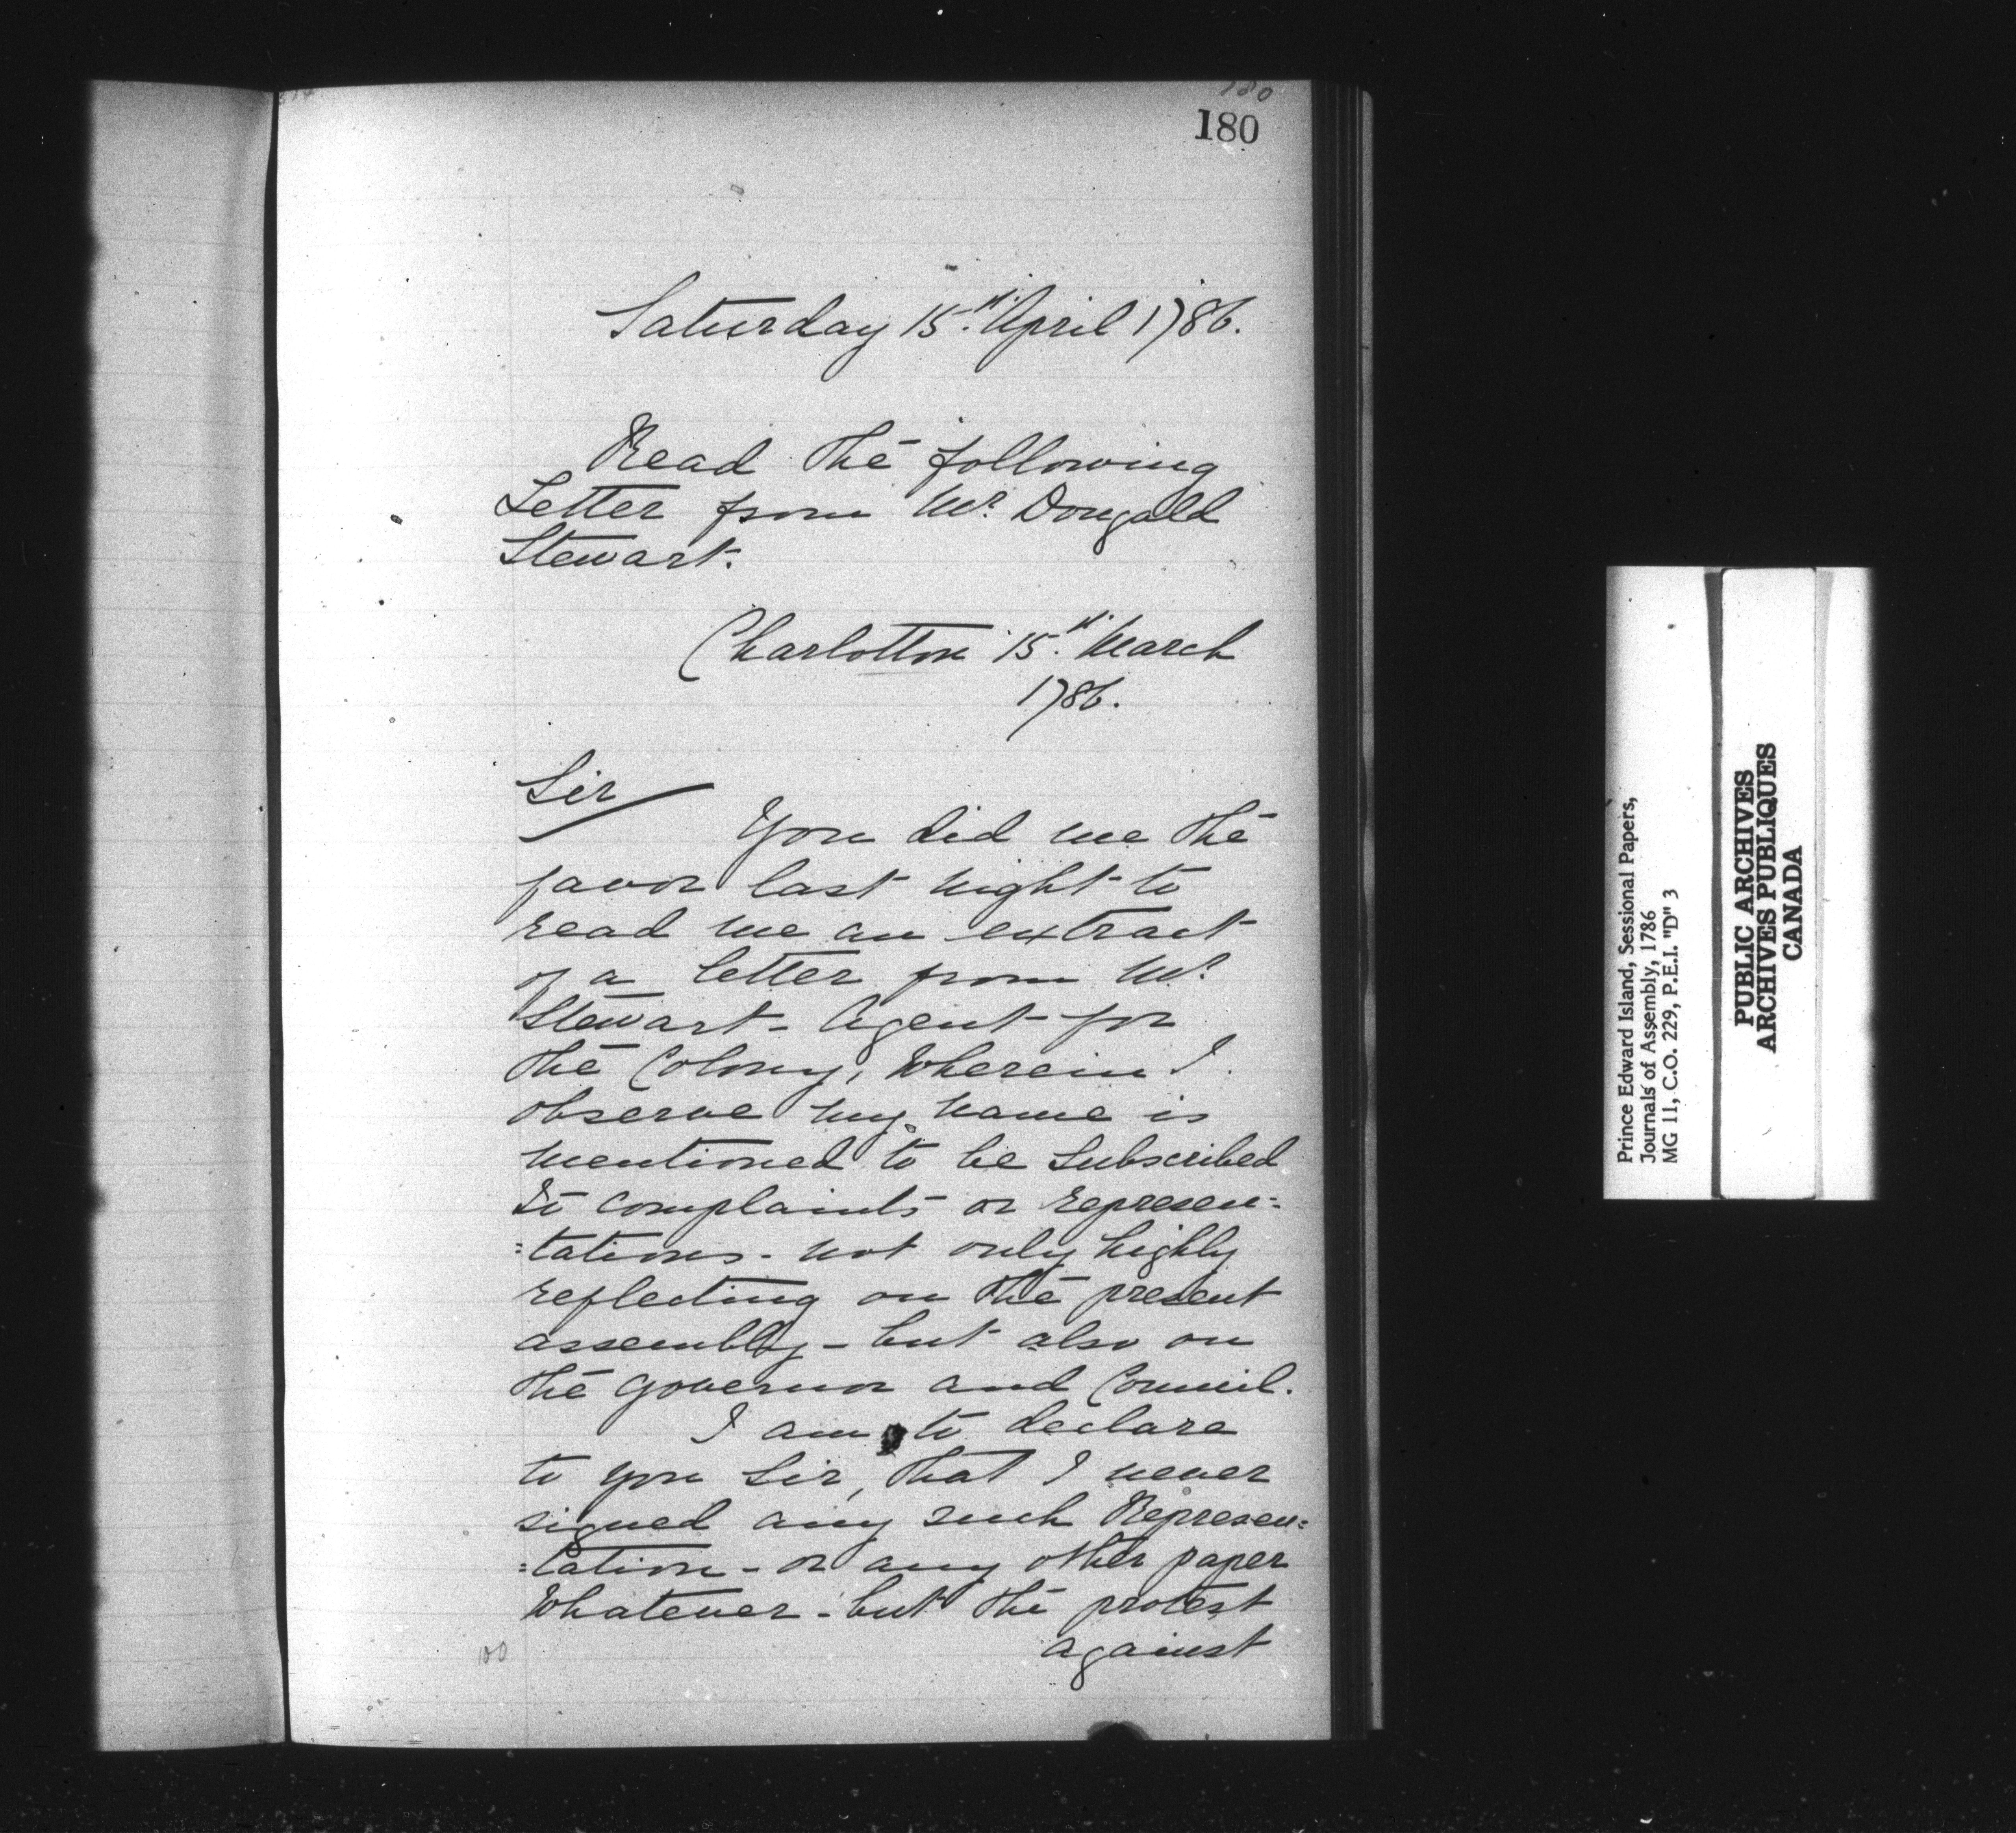 180
180
Saturday 15th April 1786.
Read the following
Letter from Mr. Dougald
Stewart.
Charlotton 15th March
1786.
Sir
You did me the
favor last night to
read me an extract
of a letter from Mr.
Stewart - Agent for
the Colony, Wherein I
observe my name is
mentioned to be Subscribed
to complaints or represen=
=tations - not only highly
reflecting on the present
assembly - but also on
the Governor and Council.
I am to declare
to you Sir, that I never
signed any such Represen=
=tation - or any other paper
Whatever - but the protest
against
100
Prince Edward Island, Sessional Papers,
Journals of Assembly, 1786
MG 11, C.O. 229, P.E.I. "D" 3
PUBLIC ARCHIVES
ARCHIVES PUBLIQUES
CANADA